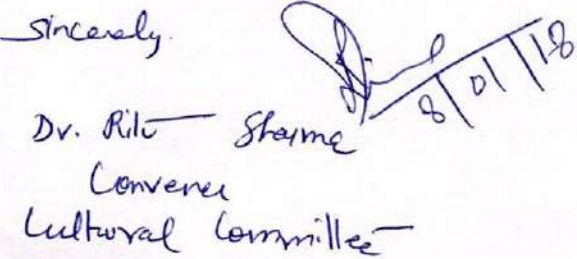 Sincerely.
8/01/18
Dr. Ritu Sharma
Convener
Cultural Committee